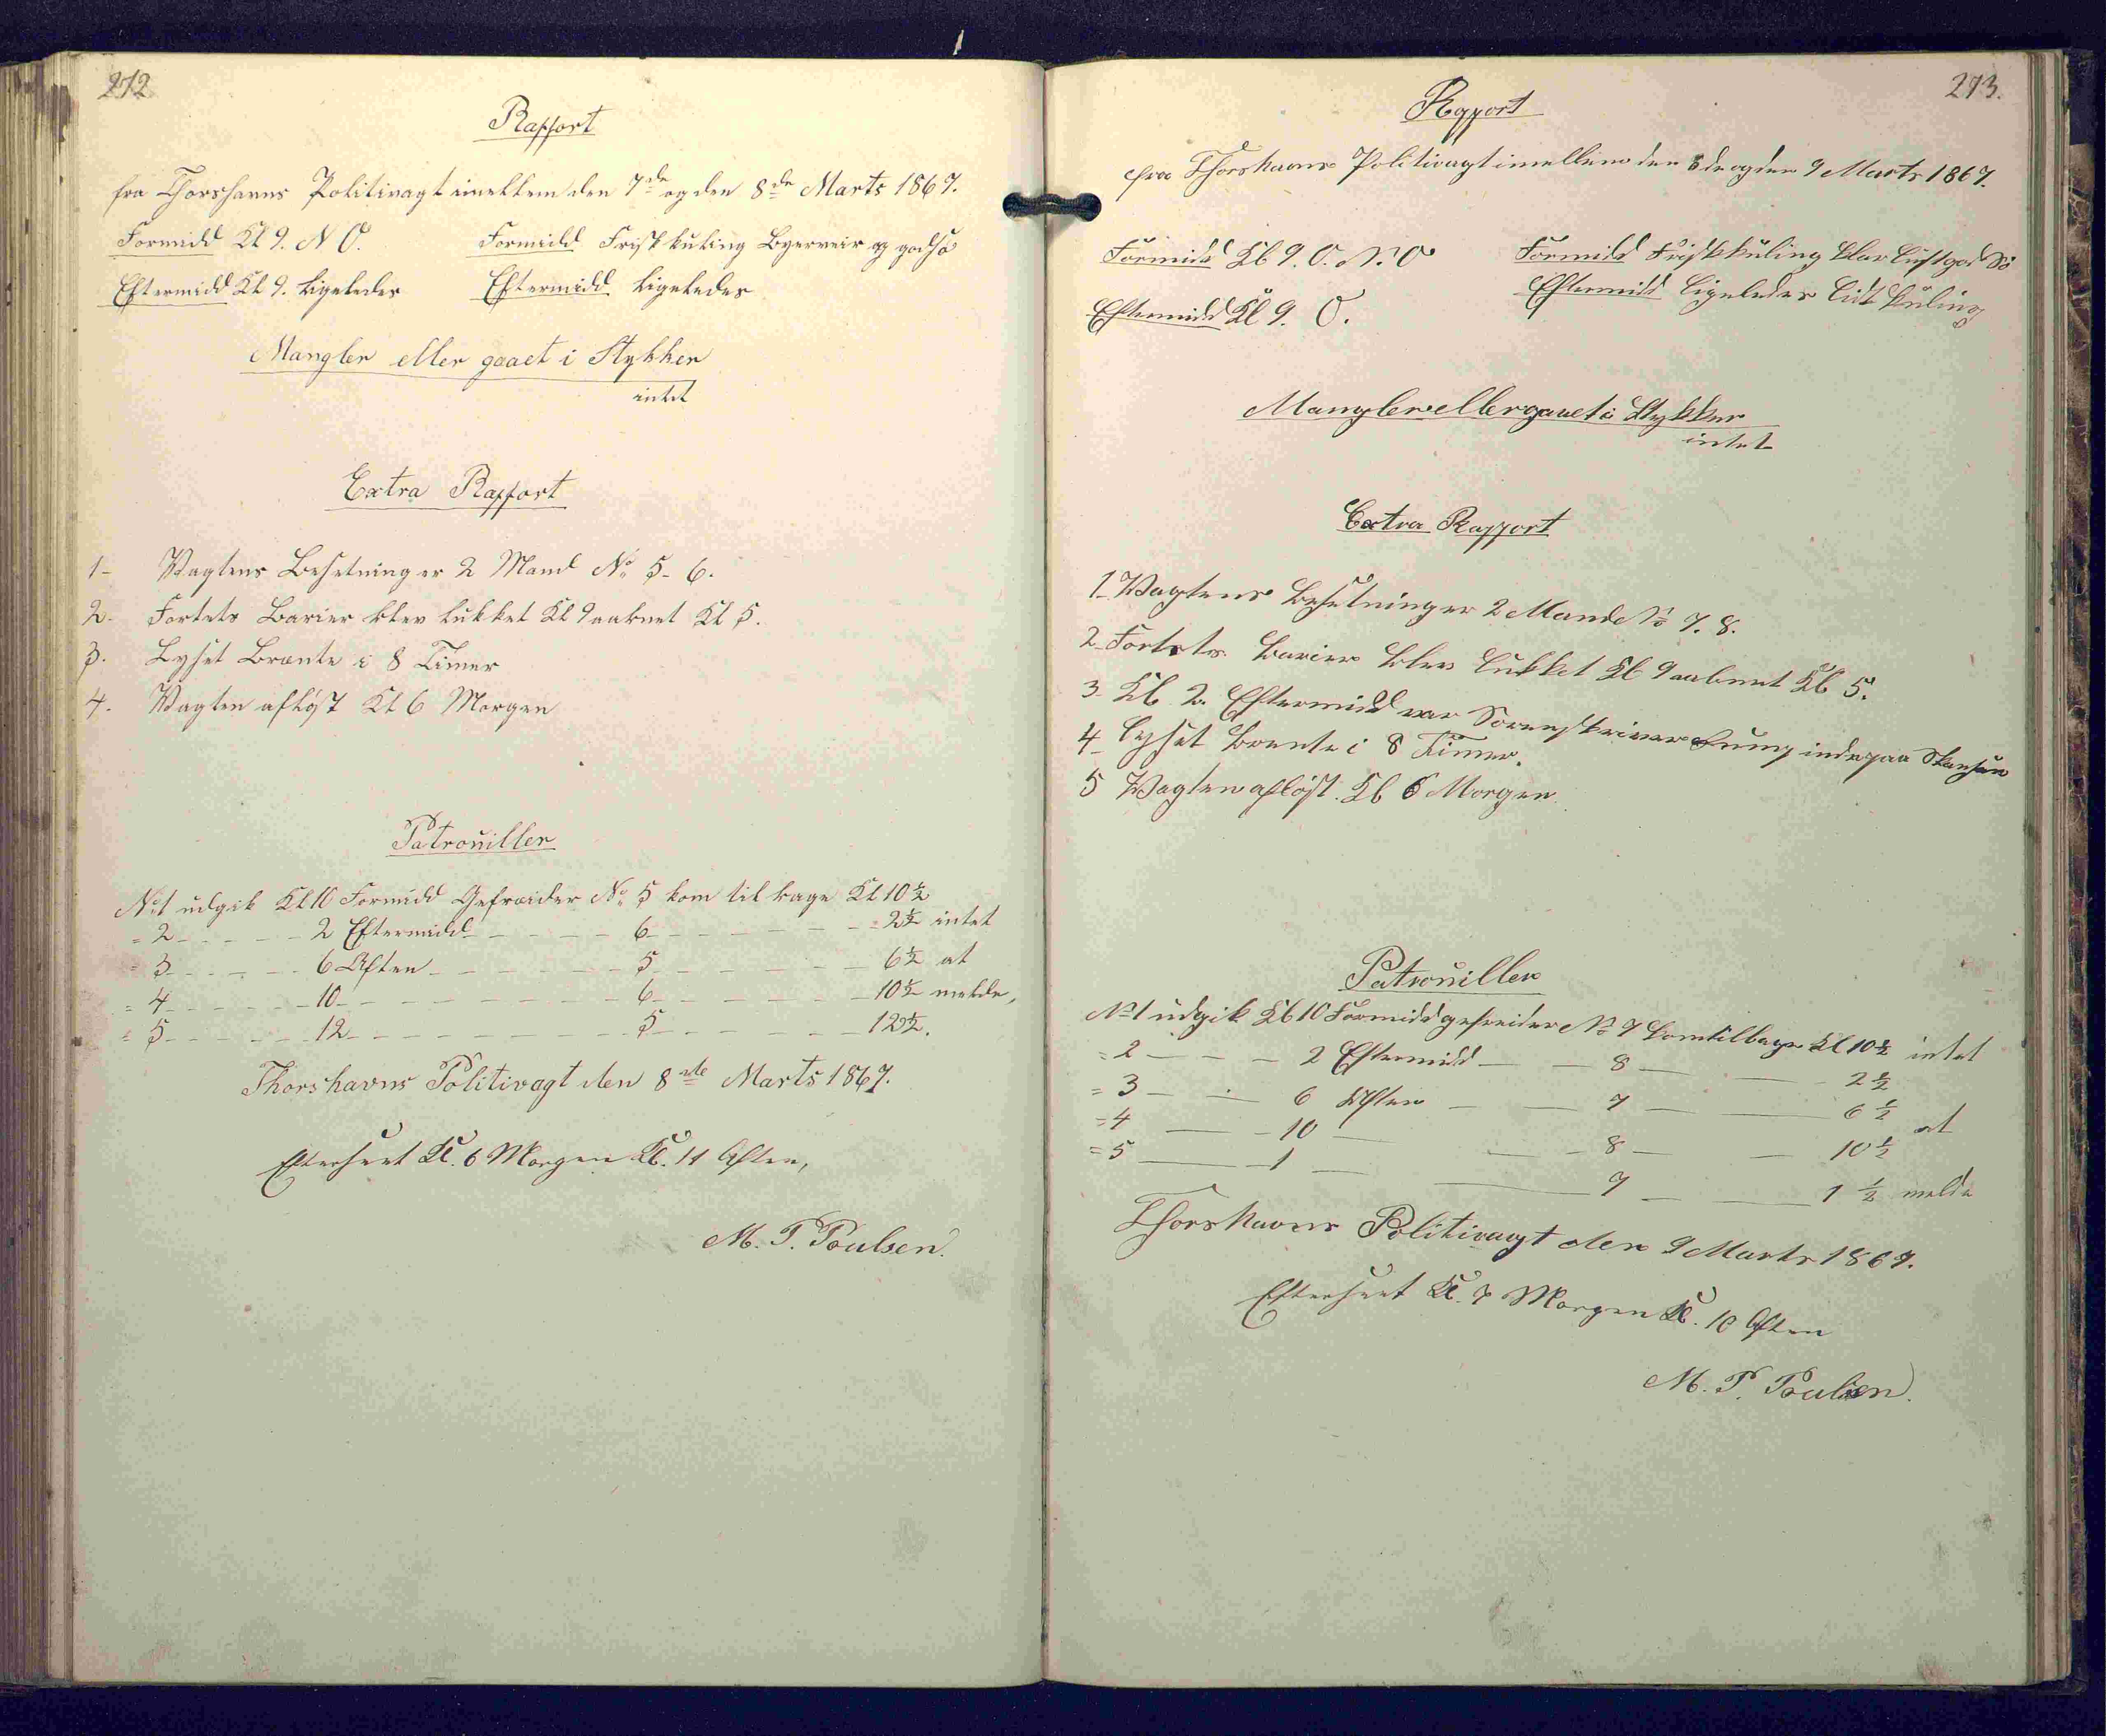 272
Rapport
fra Thorshavns Politivagt imellem den 7de og den 8de Marts 1867.
Formidd Kl 9. N O. Formidd Frisk kuling Byerveir og god Sø
Eftermidd Kl 9. ligeledes Eftermidd ligeledes
Mangler eller gaaet i Stykker
intet
Extra Rapport
1- Vagtens Besetning er 2 Mand No 5-6.
2- Fortets Barier blev lukket Kl 9 aabnet Kl 5.
3. Lyset Brænte i 8 Timer
4. Vagten afløst Kl 6 Morgen
Patrouiller
No 1 udgik Kl 10 Formidd Gefreider No 5 kom tilbage Kl 10½
= 2 - - - - - 2 Eftermidd - - - - 6 - - - - - - 2½ intet
= 3 - - - - - 6 Aften - - - - - - 5 - - - - - - 6½ at
= 4 - - - - - 10 - - - - - - - - 6 - - - - - - 10½ melde,
= 5 - - - - - 12 - - - - - - - - 5 - - - - - - 12½.
Thorshavns Politivagt den 8de Marts 1867.
Efterseet Kl. 6 Morgen Kl. 11 Aften,
M. P. Poulsen.
273.
Rapport
fra Thorshavns Politivagt imellem den 8de og den 9 Marts 1867.
Formidd Kl 9. O. N. O Formidd Frisk kuling klar Luft god Sø
Eftermidd Kl 9. O. Eftermidd ligeledes lidt kuling
Mangler eller gaaet i Stykker
intet
Extra Rapport
1- Vagtens Besetning er 2 Mand No 7. 8.
2- Fortets Barier blev lukket Kl 9 aabnet Kl 5.
3- Kl 2. Eftermidd var Sorenskriver inde paa Skansen
4- Lyset brente i 8 Timer.
5 Vagten afløst Kl 6 Morgen
Patrouiller
No 1 udgik Kl 10 Formidd gefreider No 7 kom tilbage Kl 10½ intet
= 2 - - - 2 Eftermidd - - 8 - - 2½
= 3 - - 6 Aften - - 7 - - 6½ at
= 4 - - 10 - - - 8 - - 10½
= 5 - - 1 - - - 7 - - 1½ melde
Thorshavns Politivagt den 9 Marts 1867.
Efterseet Kl. 7 Morgen Kl. 10 Aften
M. P. Poulsen.